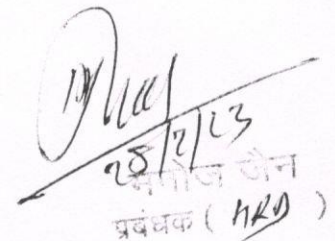 28/2/23
मनोज जैन
प्रबंधक ( HRD )